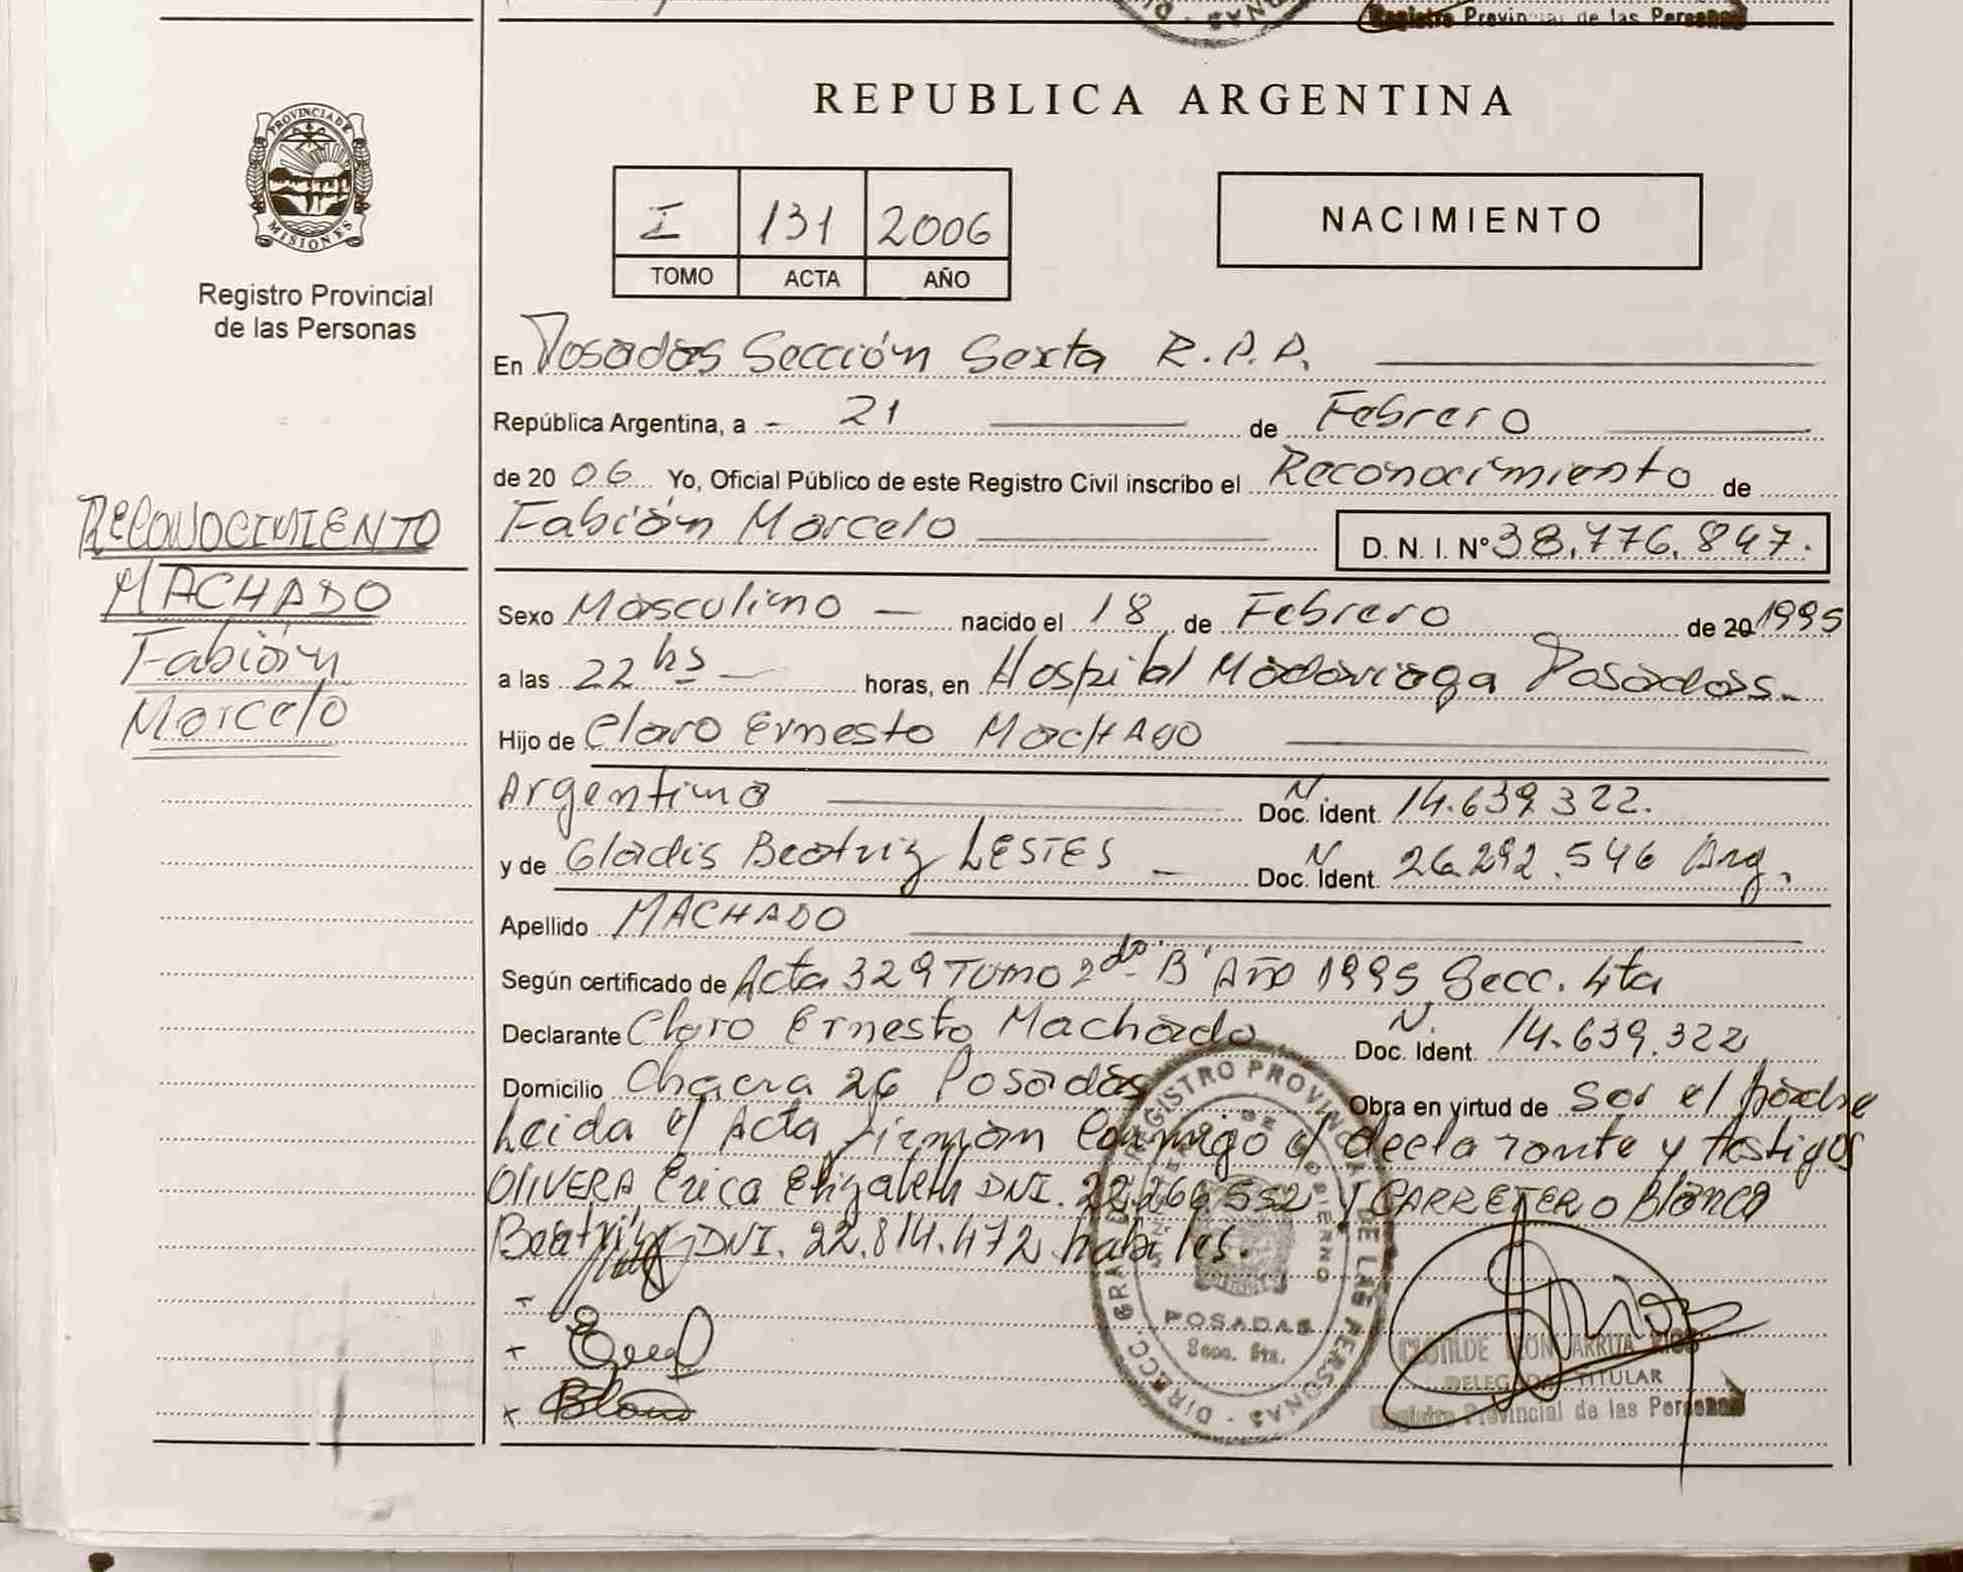 Registro Provincial de las Personas
REPUBLICA ARGENTINA
PROVINCIA DE
MISIONES
Registro Provincial
de las Personas
I 131 2006
TOMO ACTA AÑO
NACIMIENTO
En Posadas Sección Sexta R.P.P.
República Argentina, a 21 de Febrero
de 2006 Yo, Oficial Público de este Registro Civil inscribo el Reconocimiento de
Fabián Marcelo D. N. I. Nº 38.776.847.
RECONOCIMIENTO
MACHADO
Fabián
Marcelo
Sexo Masculino nacido el 18 de Febrero de 20 1995
a las 22 hs horas, en Hospital Madariaga Posadas
Hijo de Claro Ernesto MacHADO
Argentino N Doc. Ident. 14.639.322.
y de Gladis Beatriz LESTES N Doc. Ident. 26.292.546 Arg.
Apellido MACHADO
Según certificado de Acta 329 Tomo 2do B Año 1995 Secc. 4ta
Declarante Claro Ernesto Machado N. Doc. Ident. 14.639.322
Domicilio Chacra 26 Posadas Obra en virtud de ser el padre
Leida el Acta firman conmigo el declarante y testigos
OlIVERA Erica Elizabeth DNI. 22.266.552 y CARRETERO Blanca
Beatriz DNI. 22.814.472 habiles.
DIRECC. GRAL. DE REGISTRO PROVINCIAL DE LAS PERSONAS
POSADAS
Secc. 6ta.
CLOTILDE RIOS
DELEGADA TITULAR
Registro Provincial de las Personas